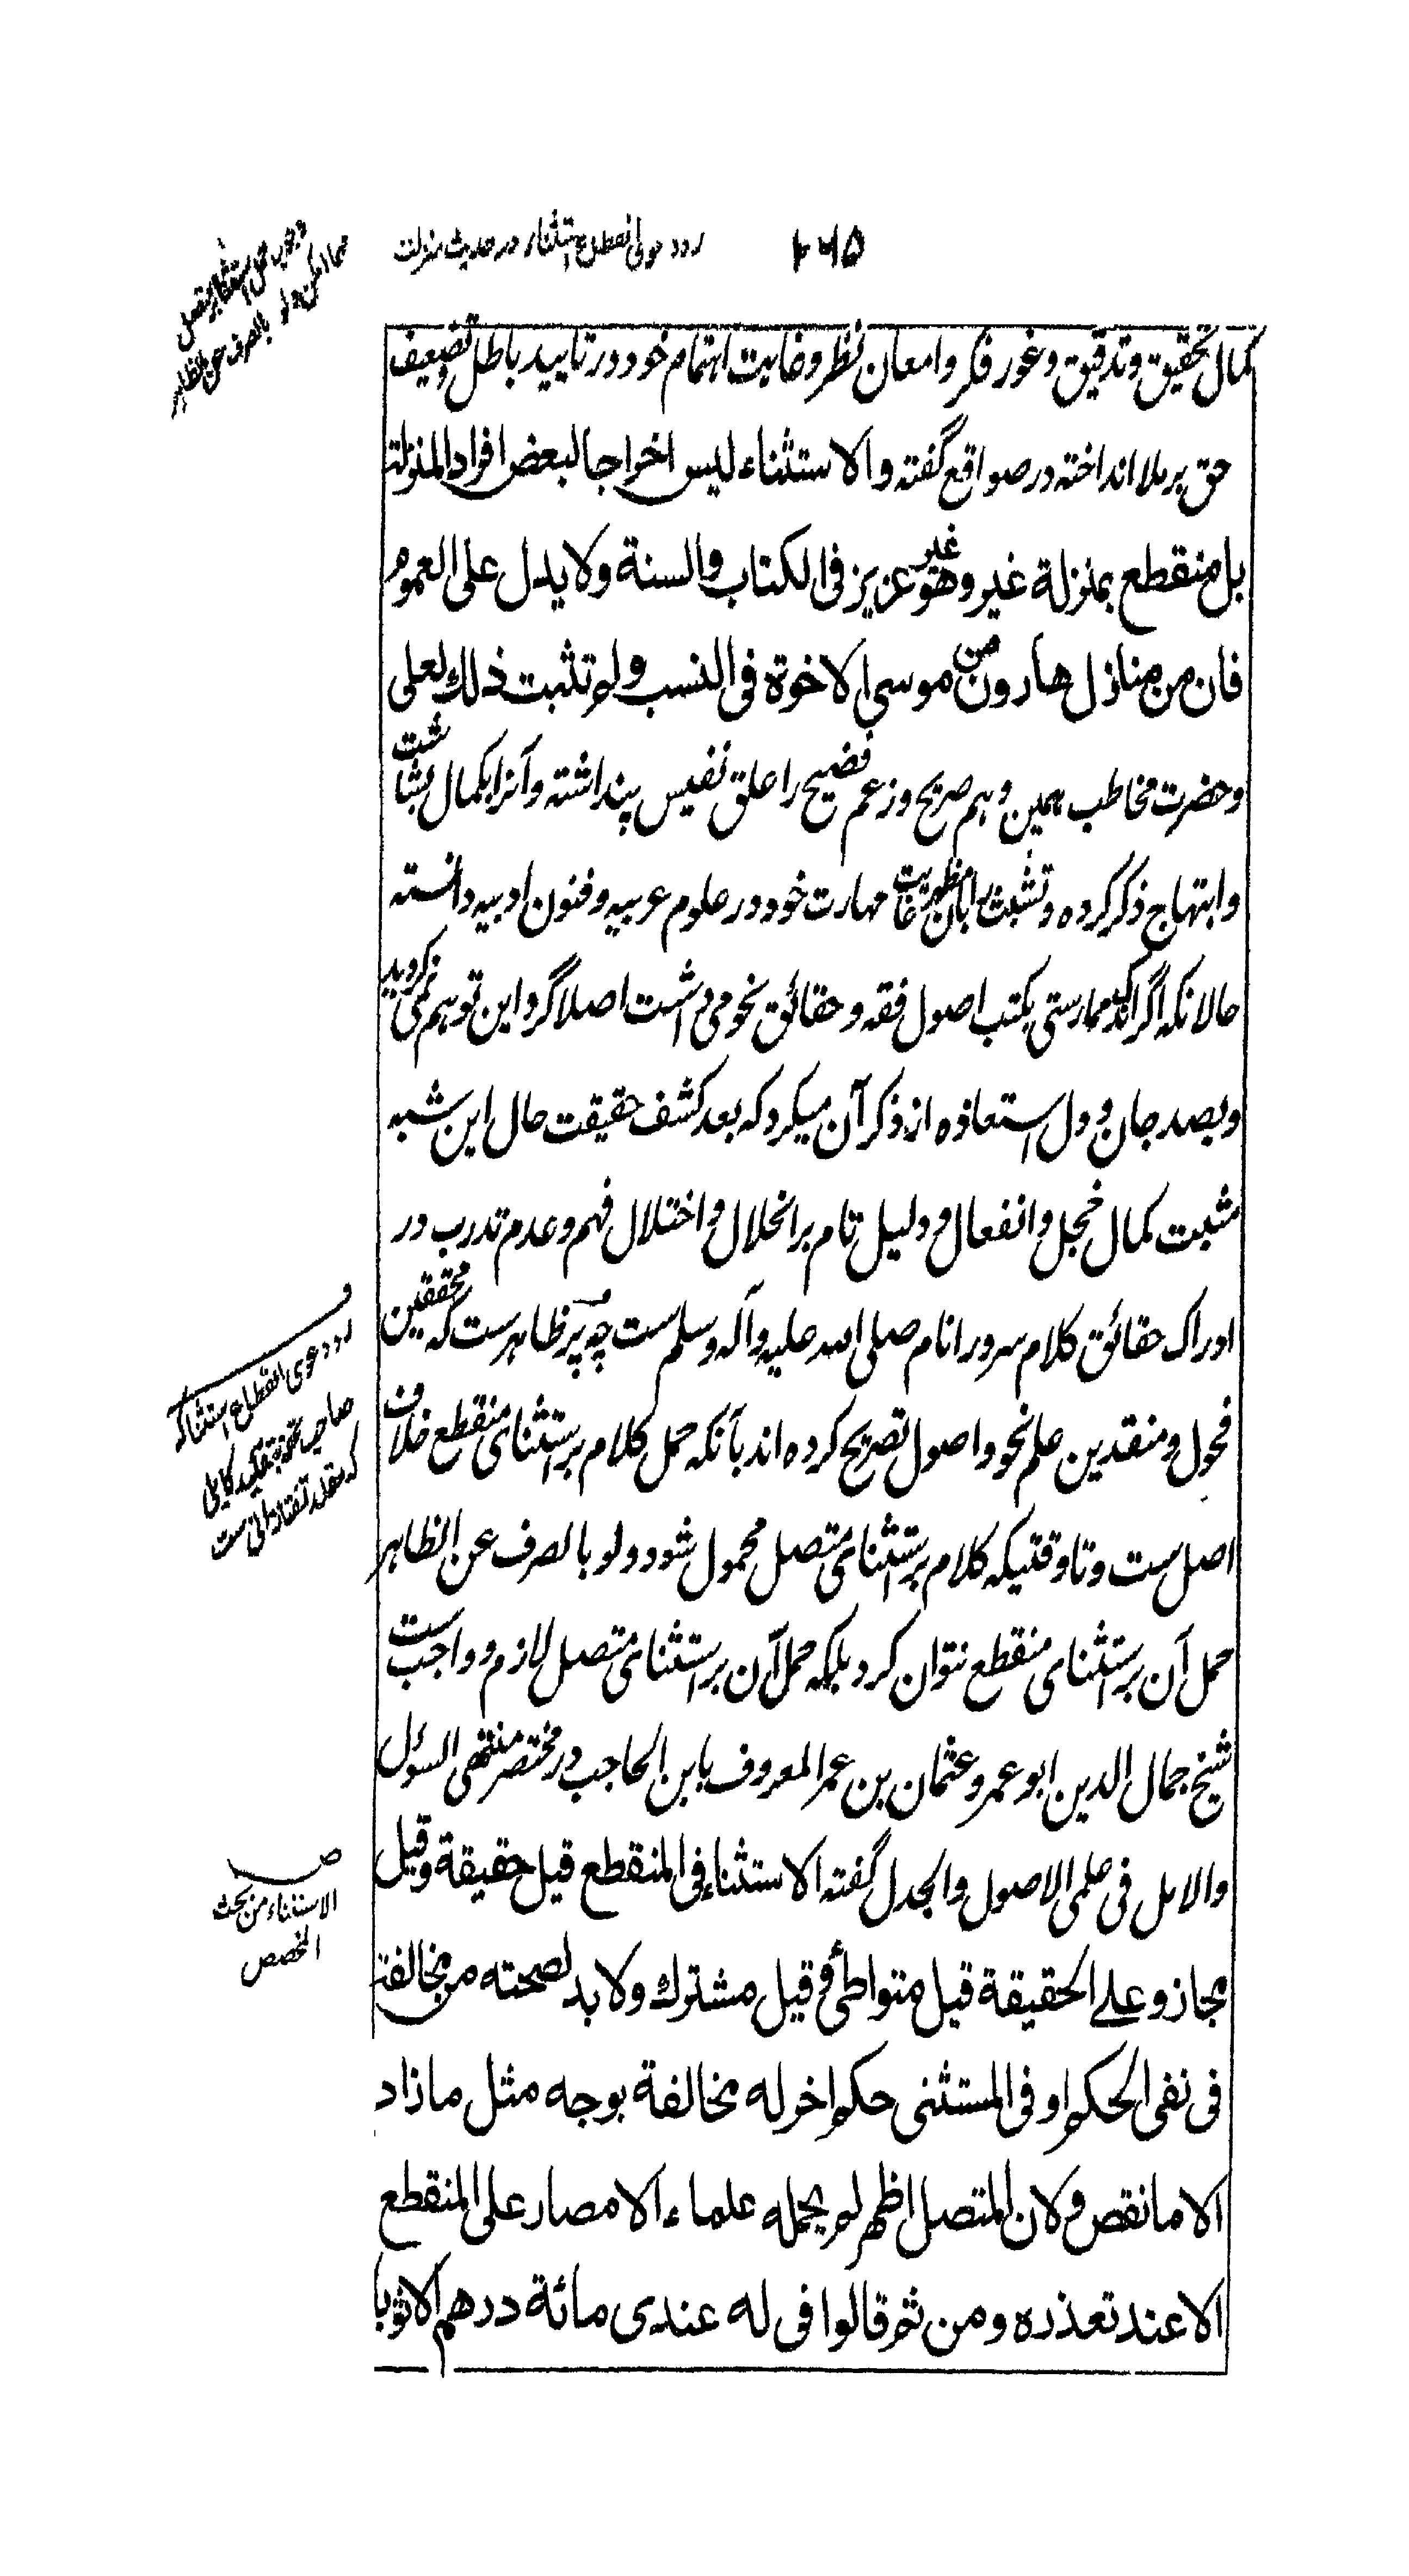 ۲۶۵
رد دعوی انقطاع استثناء در حدیث منزلت
وجوب حمل استثنا بر متصل
مهما امکن ولو بالصرف عن الظاهر
کمال تحقیق و تدقیق و غور فکر و امعان نظر و غایت اهتمام خود در تایید باطل و تضعیف
حق بر ملا انداخته در صواقع گفته والاستثناء لیس اخراجا لبعض افراد المنزلة
بل منقطع بمنزلة غیر وهو غیر عزیز فی الکتاب والسنة ولا یدل علی العموم
فان من منازل هارون من موسی الاخوة فی النسب ولم تثبت ذلك لعلی
و حضرت مخاطب همین وهم صریح و زعم فضیح را علق نفیس پنداشته و آنرا بکمال بشاشت
و ابتهاج ذکر کرده و تشبث بآن مظهر غایت مهارت خود در علوم عربیه و فنون ادبیه دانسته
حالانکه اگر اندک ممارستی بکتب اصول فقه و حقائق نحو می داشت اصلا گرد این توهم نمی گردید
و بصد جان و دل استعاذه از ذکر آن میکرد که بعد کشف حقیقت حال این شبه
مثبت کمال خجل و انفعال و دلیل تام بر انحلال و اختلال فهم و عدم تدرب در
ادراک حقائق کلام سرور انام صلی الله علیه و آله و سلم ست چه پر ظاهرست که محققین
فحول و منقدین علم نحو و اصول تصریح کرده اند بآنکه حمل کلام بر استثنای منقطع خلاف
اصل ست و تا وقتیکه کلام بر استثنای متصل محمول شود ولو بالصرف عن الظاهر
حمل آن بر استثنای منقطع نتوان کرد بلکه حمل آن بر استثنای متصل لازم و واجب ست
شیخ جمال الدین ابو عمرو عثمان بن عمر المعروف بابن الحاجب در مختصر منتهی السؤل
والامل فی علمی الاصول والجدل گفته الاستثناء فی المنقطع قیل حقیقة وقیل
مجاز وعلی الحقیقة قیل متواطئ وقیل مشترك ولا بد لصحته من مخالفة
فی نفی الحکم او فی المستثنی حکم اخر له مخالفة بوجه مثل ما زاد
الا ما نقص ولان المتصل اظهر لم یحمله علماء الامصار علی المنقطع
الا عند تعذره ومن ثم قالوا فی له عندی مائة درهم الا ثوبا
رد دعوی انقطاع استثنا که
صاحب تحفه بتقلید کابلی
که مقلد تفتازانی ست
ص
الاستثناء من بحث
المخصص